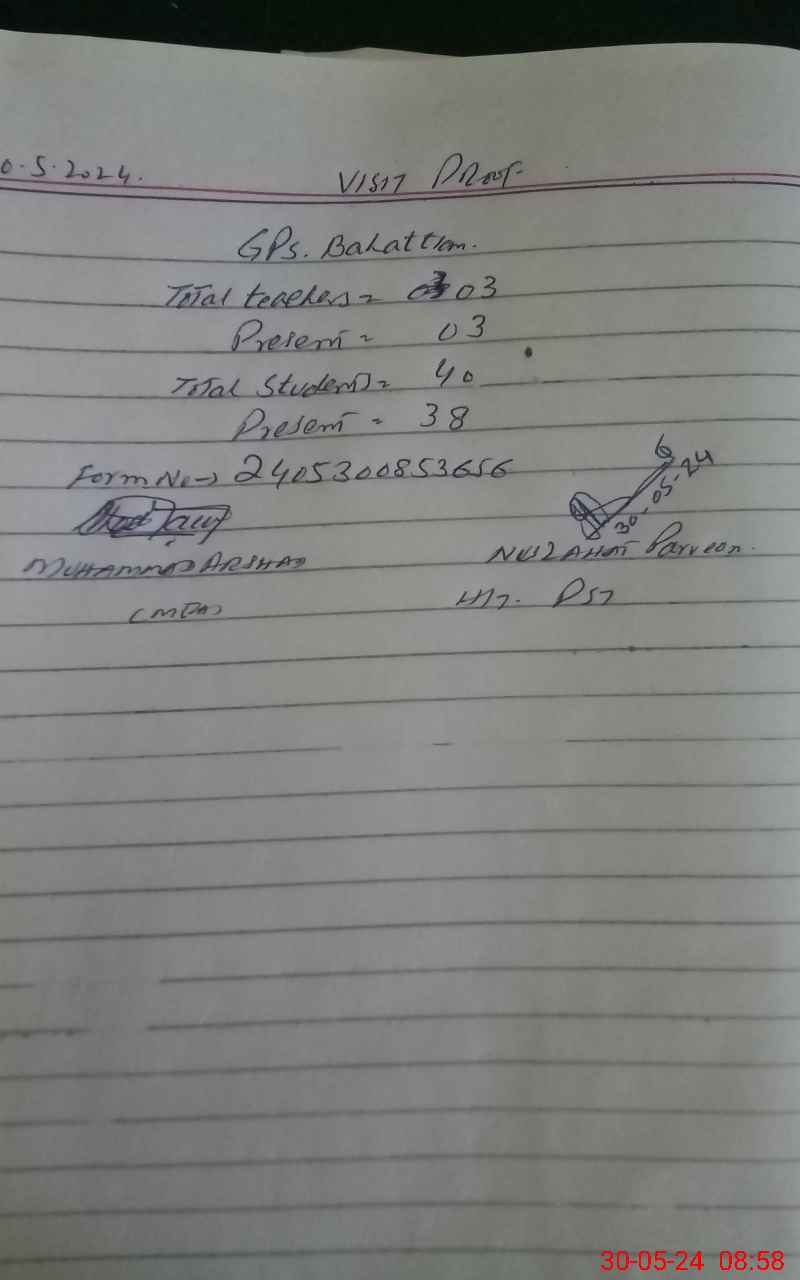 0.5.2024. VISIT PROOF
GPS. Bahattian.
Total teachers = 03 03
Present = 03
Total Students = 40
Present = 38
Form No → 2405300853656
30-05-24
MUHAMMAD ARSHAD NUZAHAT Parveen.
(MEA) HT. PST
30-05-24 08:58